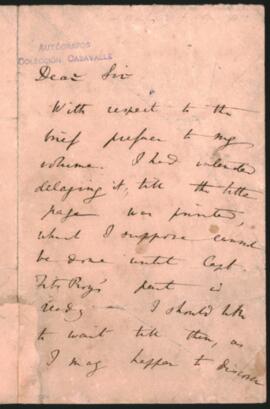 AUTÓGRAFOS
COLECCIÓN CASAVALLE
Dear Sir
With respect to the
brief preface to my
volume. I had intended
delaying it, till the title
page was printed,
what I suppose cannot
be done until Capt.
Fitz Roy's part is
ready — I should like
to wait till then, as
I may happen to discover